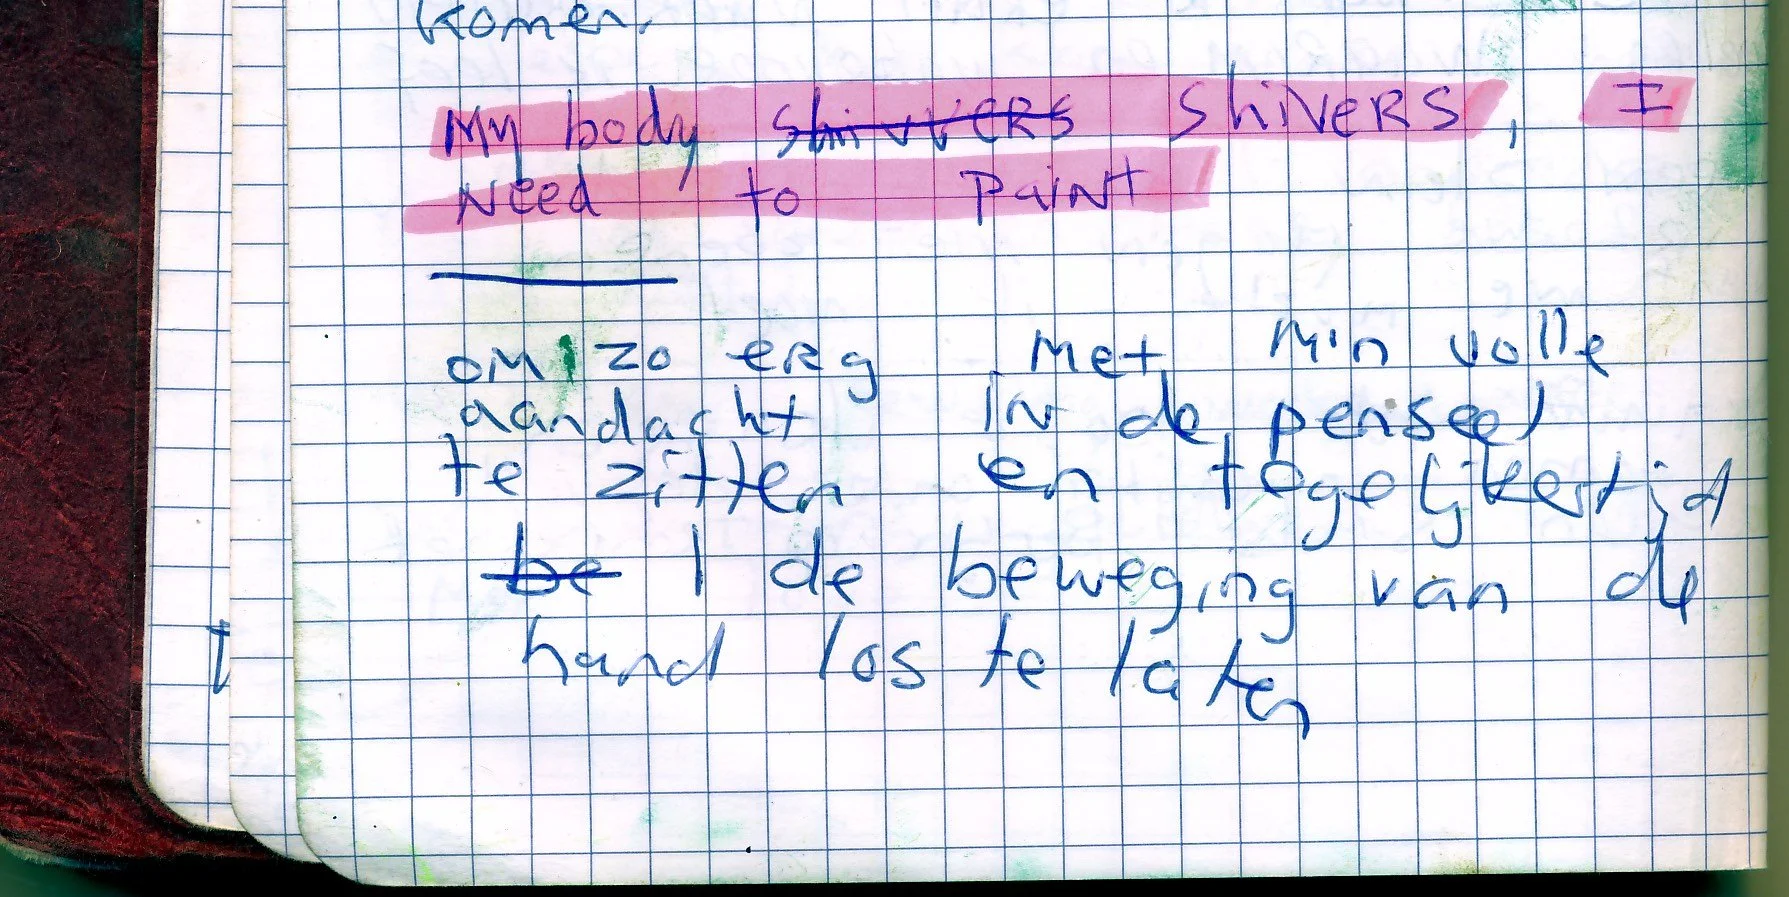 komen.
My body shivvers shivers, I
need to paint
om zo erg met min volle
aandacht in de penseel
te zitten en tegelijkertijd
be | de beweging van de
hand los te laten